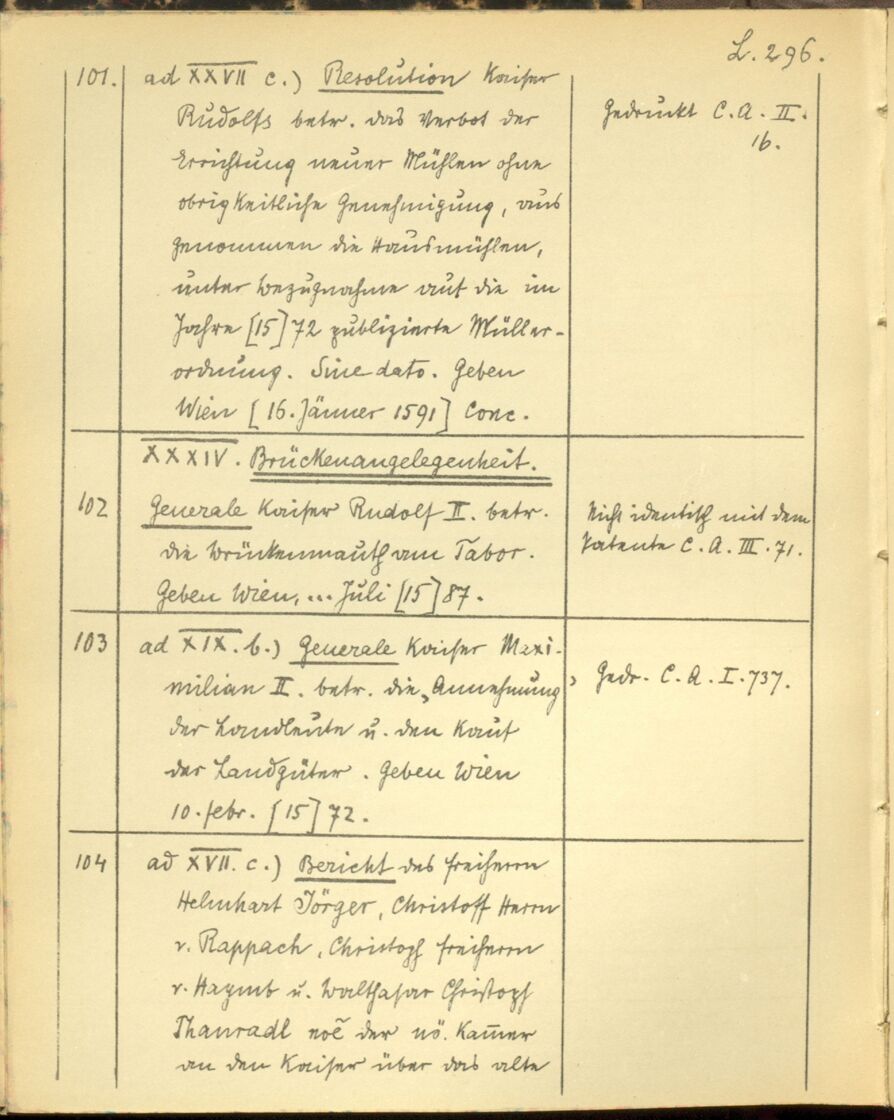 L. 296.
101. ad XXVII c.) Resolution Kaiser
Rudolfs betr. das Verbot der
Errichtung neuer Mühlen ohne
obrigkeitliche Genehmigung, aus
genommen die Hausmühlen,
unter Bezugnahme auf die im
Jahre [15]72 publizierte Müller-
ordnung. Sine dato. Geben
Wien [16. Jänner 1591] Conc.
Gedruckt C. A. II.
16.
XXXIV. Brückenangelegenheit.
102 Generale Kaiser Rudolf II. betr.
die Brückenmauth am Tabor.
Geben Wien, ... Juli [15]87.
Nicht identisch mit dem
Patente C. A. III. 71.
103 ad XIX. b.) Generale Kaiser Maxi-
milian II. betr. die „Annehmung"
der Landleute u. den Kauf
der Landgüter. Geben Wien
10. febr. [15]72.
Gedr. C. A. I. 737.
104 ad XVII. c.) Bericht des Freiherrn
Helmhart Jörger, Christoff Herrn
v. Rappach, Christoph Freiherrn
v. Haymb u. Balthasar Christoph
Thanradl noē der nö. Kam̄er
an den Kaiser über das alte